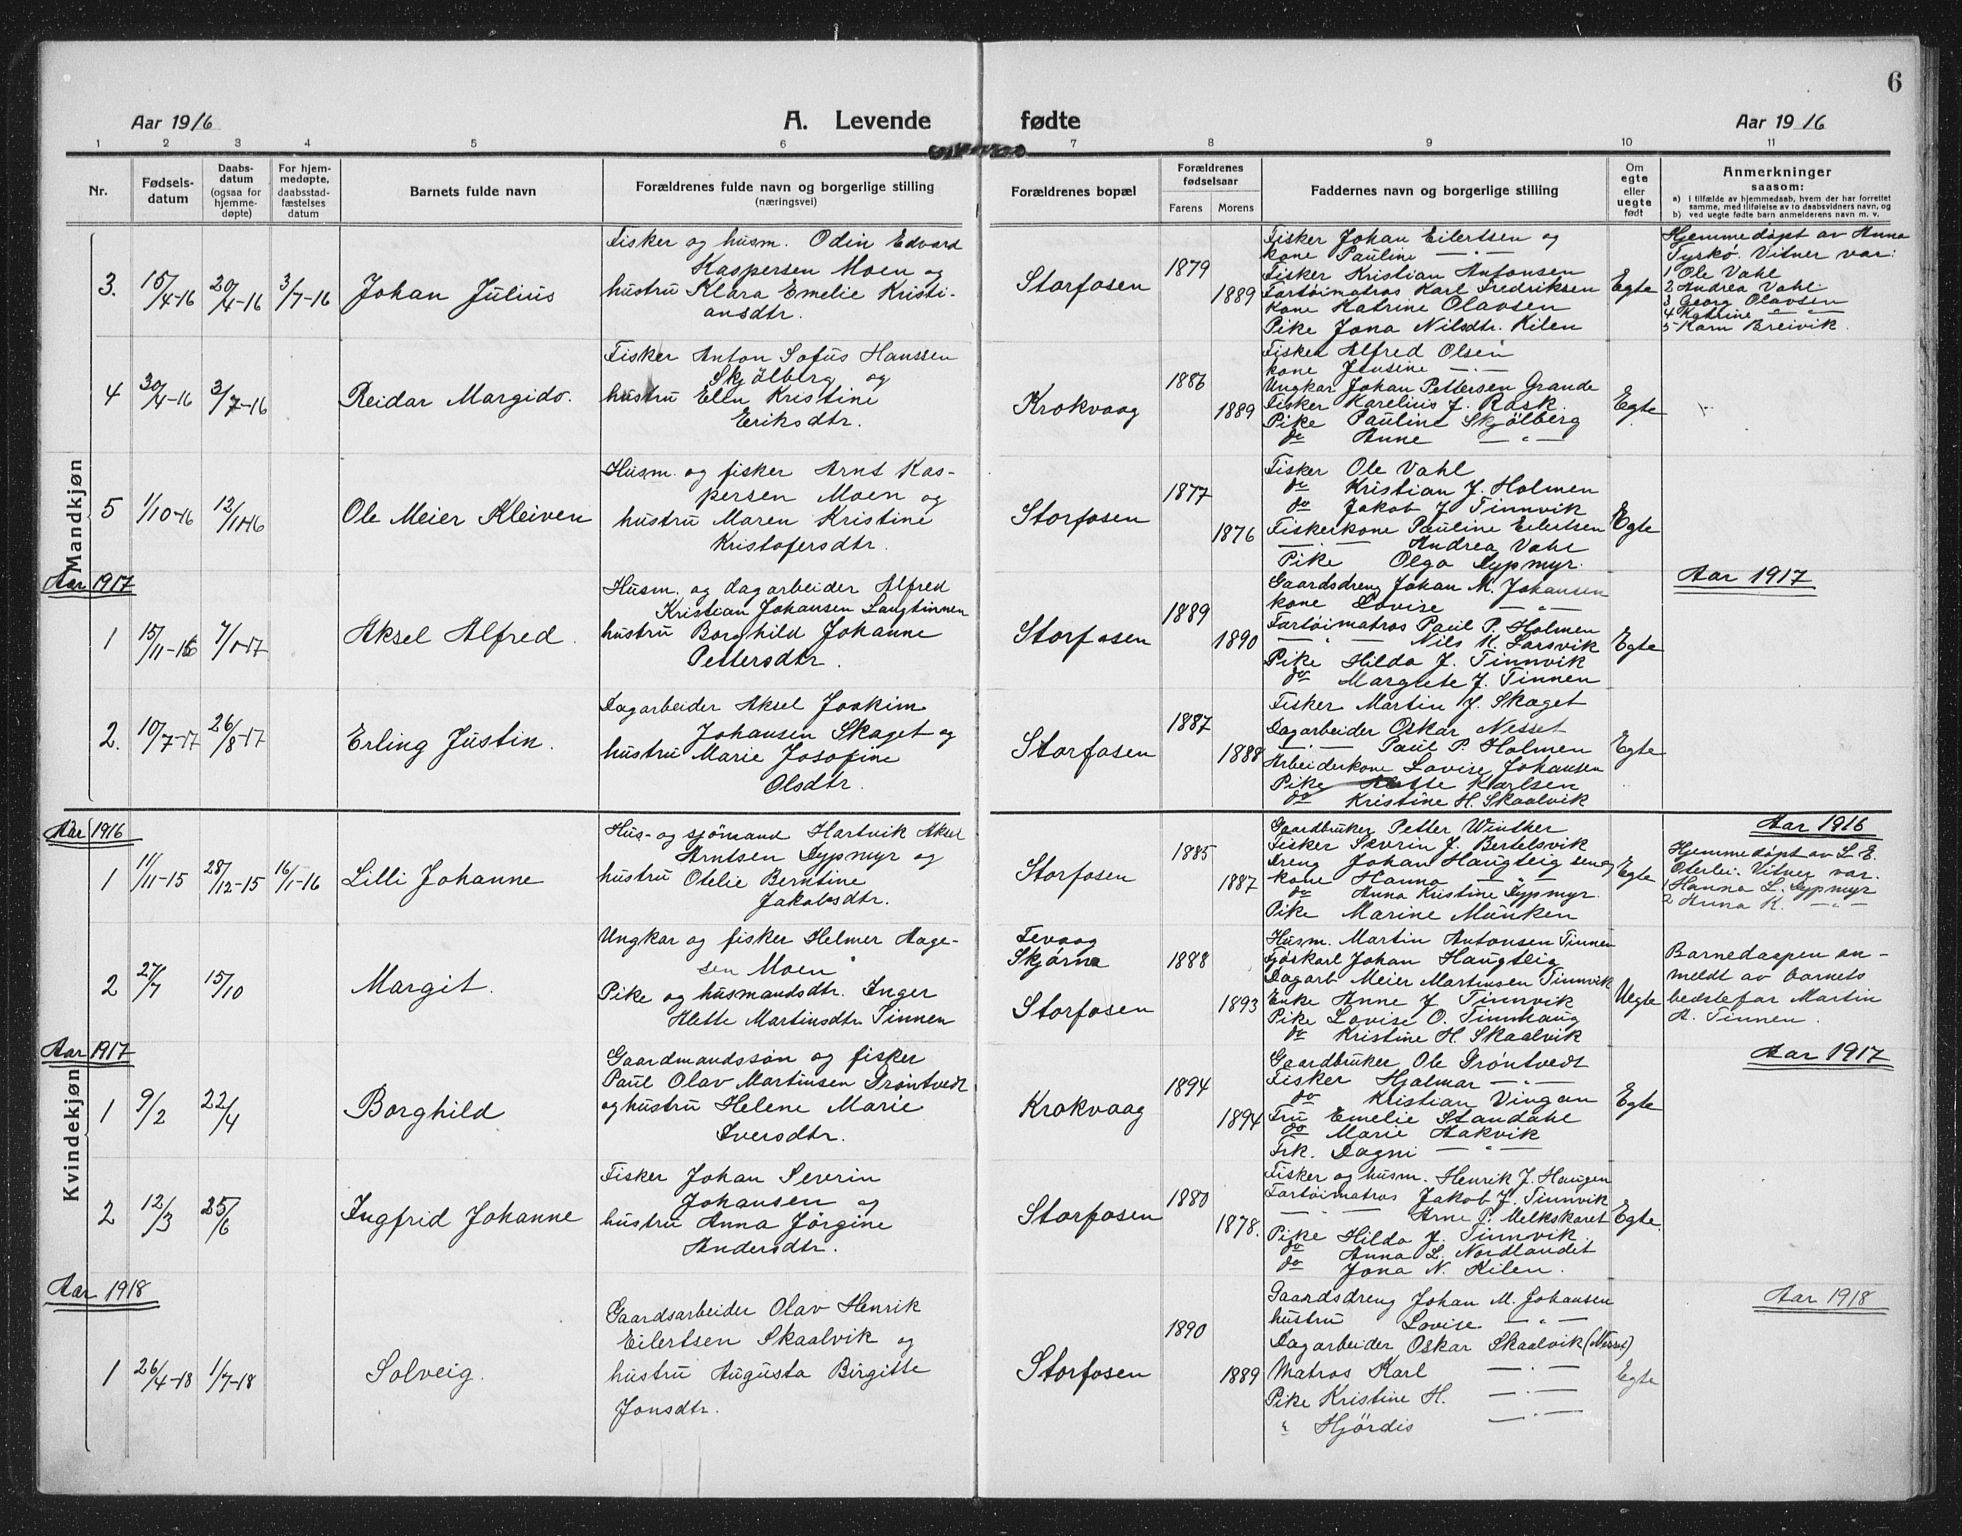 6
Aar 1916
A. Levende fødte
Aar 1916
1 2 3 4 5 6 7 8 9 10 11
Nr.
Fødsels-
datum
Daabs-
datum
(ogsaa for
hjemme-
døpte)
For hjem-
medøpte,
daabsstad-
fæstelses
datum
Barnets fulde navn
Forældrenes fulde navn og borgerlige stilling
(næringsvei)
Forældrenes bopæl
Forældrenes
fødselsaar
Farens Morens
Faddernes navn og borgerlige stilling
Om
egte
eller
uegte
født
Anmerkninger
saasom:
a) i tilfælde av hjemmedaab, hvem der har forrettet
samme, med tilføielse av to daabsvidners navn, og
b) ved uegte fødte barn anmelderens navn m. v.
Mandkjøn
3. 15/4-16 20/4-16 3/7-16 Johan Julius
Fisker og husm. Odin Edvard
Kaspersen Moen og
hustru Klara Emelie Kristi-
ansdtr.
Storfosen
1879
1889
Fisker Johan Eilertsen og
kone Pauline — " —
Fisker Kristian Antonsen
Fartøimatros Karl Fredriksen
Kone Katrine Olavsen
Pike Jona Nilsdtr. Kilen
Egte
Hjemmedøpt av Anna
Tyrkö. Vitner var:
1 Ole Vahl
2 Andrea Vahl
3 Georg Olavsen
4 Katrine — " —
5 Karn Breivik.
4 30/4-16 3/7-16 Reidar Margido.
Fisker Anton Sofus Hanssen
Skjölberg og
hustru Elen Kristine
Eriksdtr.
Krokvaag
1886
1889
Fisker Alfred Olsen
kone Jensine — " —
Ungkar Johan Pettersen Grande
Fisker Karelius J. Rask
Pike Pauline Skjölberg
do Anne — " —
Egte
5 1/10-16 12/11-16 Ole Meier Kleiven
Husm. og fisker Arnt Kas-
persen Moen og
hustru Maren Kristine
Kristofersdtr.
Storfosen
1877
1876
Fisker Ole Vahl
do Kristian J. Holmen
do Jakob J. Tinnvik
Fiskerkone Pauline Eilertsen
— " — Andrea Vahl
Pike Olga Dypmyr.
Egte
Aar 1917
Aar 1917
1 15/11-16 7/1-17 Aksel Alfred.
Husm. og dagarbeider Alfred
Kristian Johansen Langtinnen
hustru Borghild Johanne
Pettersdtr.
Storfosen
1889
1890
Gaardsdreng Johan M. Johansen
kone Lovise — " —
Fartøimatros Paul P. Holmen
— " — Nils K. Larsvik
Pike Hilda J. Tinnvik
do Margrete J. Tinnen
Egte
2. 10/7-17 26/8-17 Erling Justin.
Dagarbeider Aksel Joakim
Johansen Skaget og
hustru Marie Josofine
Olsdtr.
Storfosen
1887
1888
Fisker Martin J. Skaget
Dagarbeider Oskar Nesset
— " — Paul P. Holmen
Arbeiderkone Lovise Johansen
Pike Mette Karlsen
do Kristine H. Skaalvik
Egte
Kvindekjøn
Aar 1916
Aar 1916
1 11/11-15 28/12-15 16/1-16 Lilli Johanne
Hus- og sjömand Hartvik Aksel
Arntsen Dypmyr og
hustru Otelie Berntine
Jakobsdtr.
Storfosen
1885
1887
Gaardbruker Petter Winther
Fisker Severin J. Bertelsvik
Dreng Johan Haugteig sen og
kone Hanna — " —
do Anna Kristine Dypmyr.
Pike Marine Munken
Egte
Hjemmedøpt av L. E.
Oterlei. Vitner var.
1 Hanna L. Dypmyr
2 Anna K. — " —
2 27/7 15/10 Margit.
Ungkar og fisker Helmer Aage-
sen Moen
Pike og husmandsdtr. Inger
Mette Martinsdtr. Tinnen
Tevaag
Skjørna
Storfosen
1888
1893
Husm. Martin Antonsen Tinnen
Fjøskarl Johan Haugteig
Dagarb Meier Martinsen Tinnvik
Enke Anne J. Tinnvik
Pike Lovise O. Tinnhaug
do Kristine H. Skaalvik
Uegte
Barnedaapen an-
meldt av barnets
bedstefar Martin
A. Tinnen.
Aar 1917
Aar 1917
1 9/2 22/4 Borghild
Gaardmandssøn og fisker
Paul Olav Martinsen Grøntvedt
og hustru Helene Marie
Iversdtr.
Krokvaag
1894
1894
Gaardbruker Ole Grøntvedt
Fisker Hjalmar — " —
do Kristian Vingan
Fru Emelie Standahl
do Marie Hakvik
Frk. Dagni — " —
Egte
2 12/3 25/6 Ingfrid Johanne
Fisker Johan Severin
Johansen og
hustru Anna Jörgine
Andersdtr.
Storfosen
1880
1878.
Fisker og husm. Henrik J. Haugen
Fartøimatros Jakob J. Tinnvik
— " — Arne P. Melkskaret
Pike Hilda J. Tinnvik
do Anna L. Nordlandet
do Jona N. Kilen.
Egte
Aar 1918
Aar 1918
1 26/4-18 1/7-18 Solveig.
Gaardsarbeider Olav Henrik
Eilertsen Skaalvik og
hustru Augusta Birgitte
Jonsdtr.
Storfosen
1890
1889
Gaardsdreng Johan M. Johansen
hustru Lovise — " —
Dagarbeider Oskar Skaalvik (Nesset)
Matros Karl — " —
Pike Kristine H. — " —
" Hjördis — " —
Egte